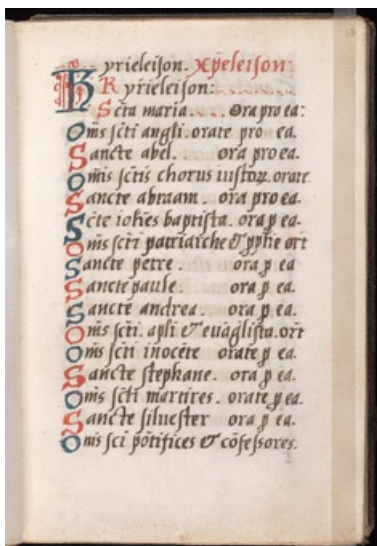 Kyrieleison. Xp̄eleison:
Kyrieleison:
Sc̄ta maria. Ora pro ea:
Om̄s sc̄ti angli. orate pro ea.
Sancte abel. ora pro ea.
Om̄is sc̄tis chorus iustoꝝ. orate
Sancte abraam. ora pro ea
Sc̄te ioh̄es baptista. ora ꝓ ea.
Om̄s sc̄ti patriarche & ꝓph̄e ort̄
Sancte petre. ora ꝓ ea
Sancte paule. ora ꝓ ea.
Sancte andrea. ora ꝓ ea.
Om̄s sc̄ti. apl̄i & evāglista. ort̄
Om̄s sc̄ti inocēte orate ꝓ ea.
Sancte stephane. ora ꝓ ea.
Om̄s sc̄ti martires. orate ꝓ ea.
Sancte siluester ora ꝓ ea.
Om̄s sc̄i pōtifices & cōfessores.